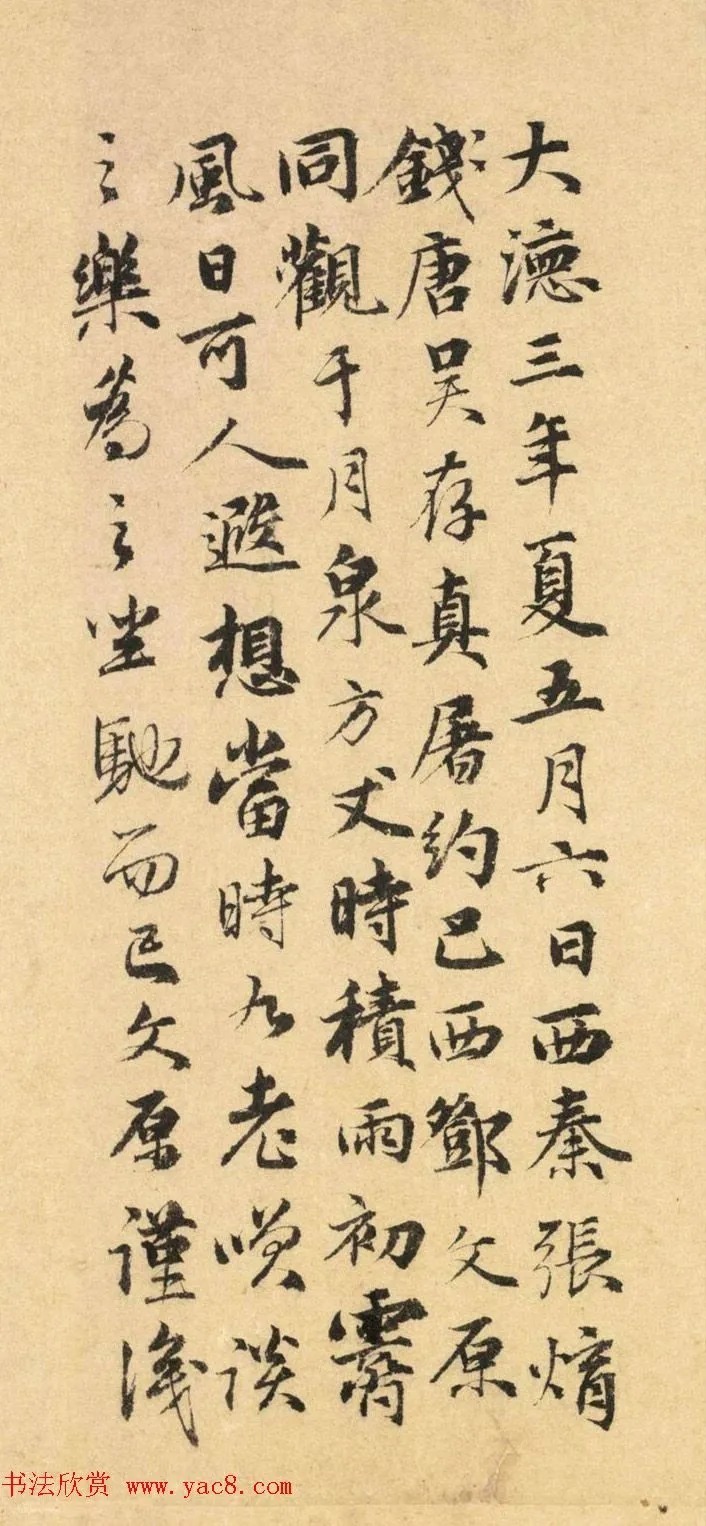 大德三年夏五月六日西秦張焴
錢唐吳存真屠約巴西鄧文原
同觀于月泉方丈時積雨初霽
風日可人遐想當時九老唉談
之樂為之坐馳而已文原謹識
书法欣赏 www.yac8.com